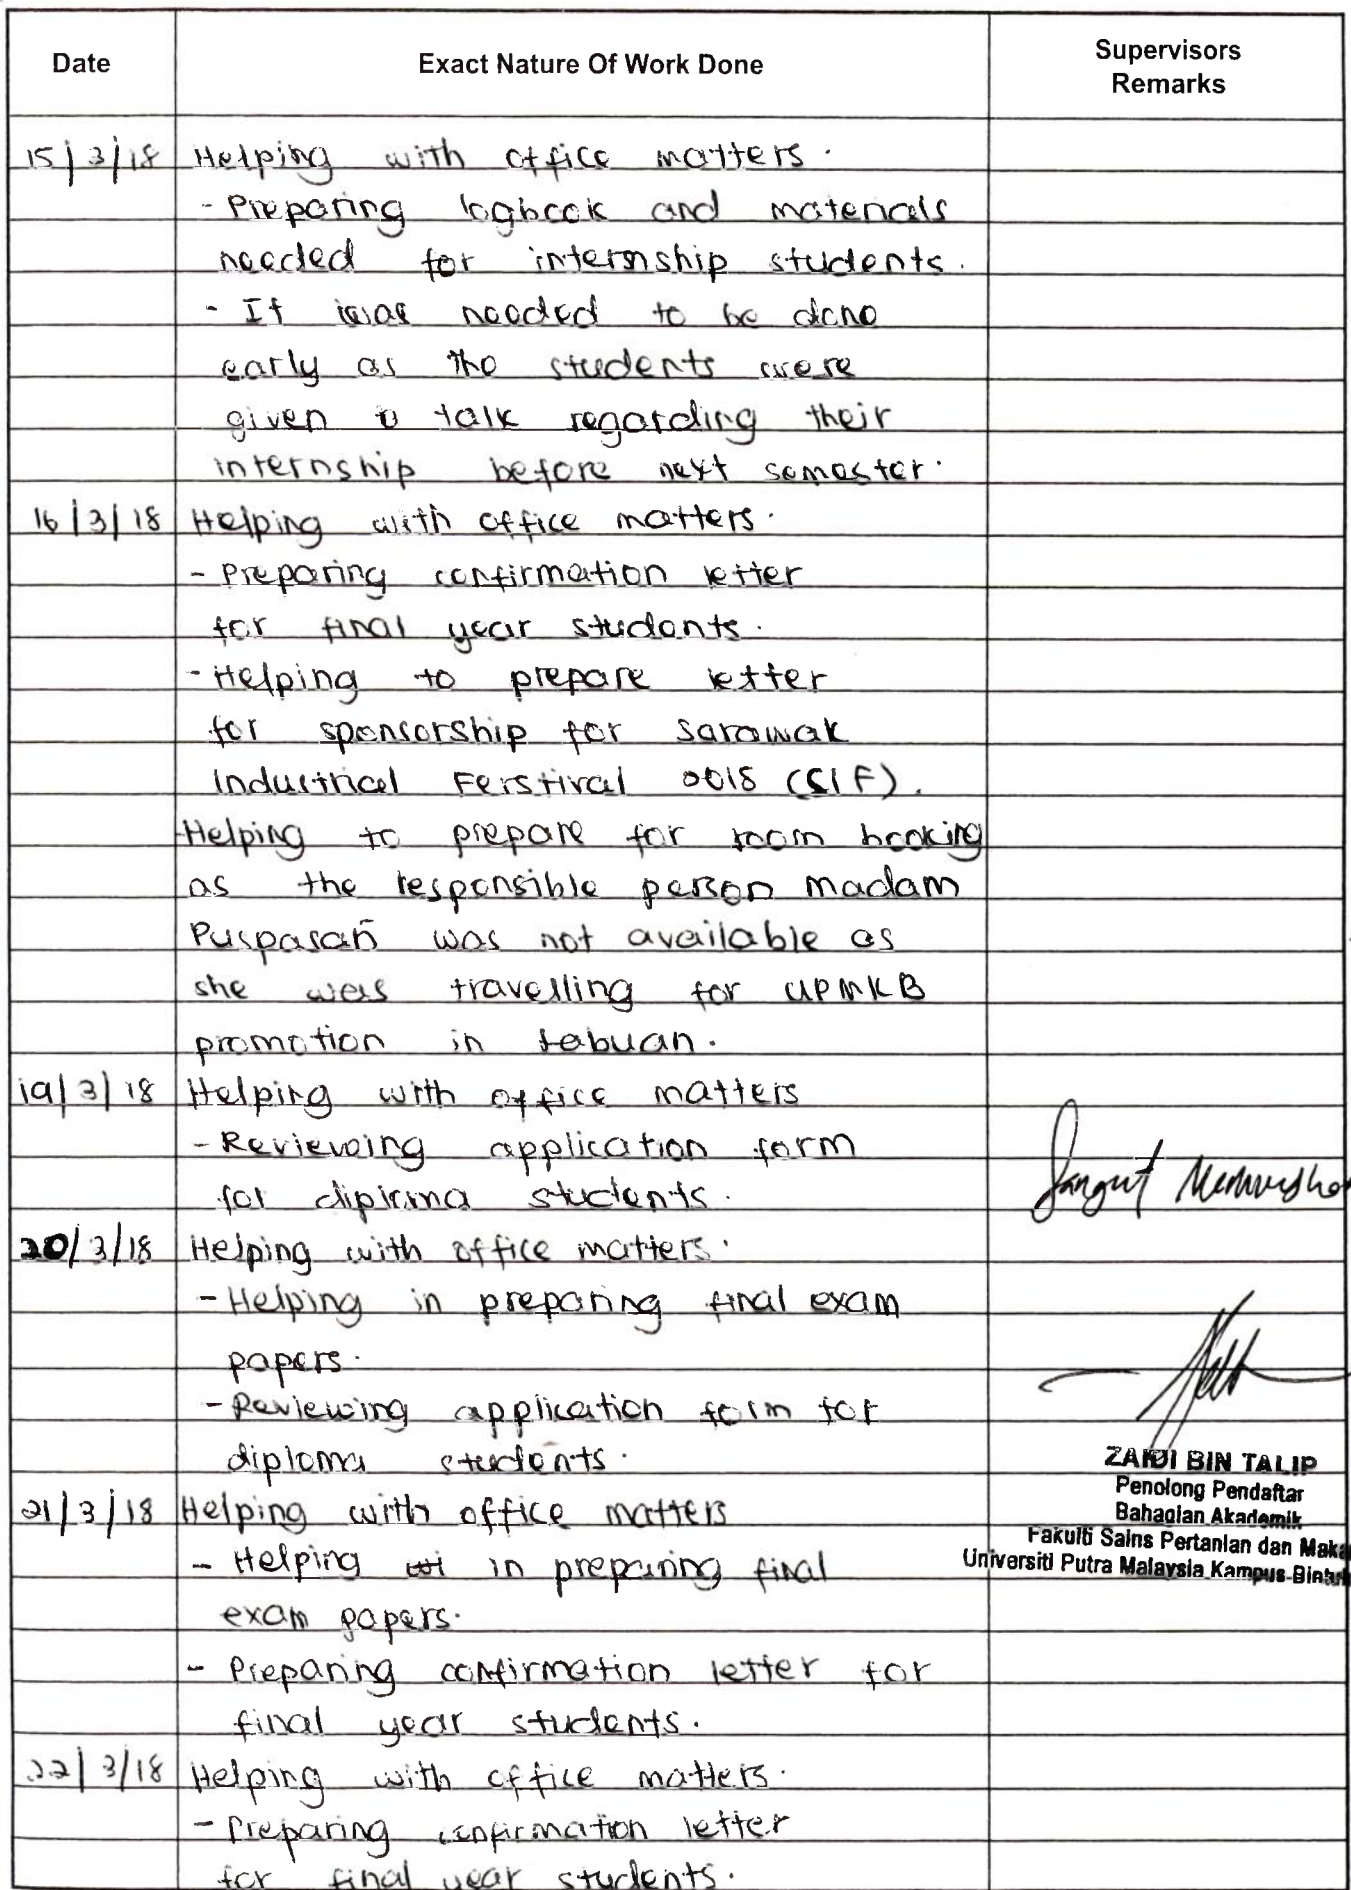 Date Exact Nature Of Work Done Supervisors
Remarks
15/3/18 Helping with office matters.
- Preparing logbook and materials
needed for internship students.
- It was needed to be done
early as the students were
given a talk regarding their
internship before next semester.
16/3/18 Helping with office matters.
- Preparing confirmation letter
for final year students.
- Helping to prepare letter
for sponsorship for Sarawak
Industrical Ferstival 2018 (SIF).
- Helping to prepare for room booking
as the responsible person madam
Puspasari was not available as
she was travelling for UPMKB
promotion in Labuan.
19/3/18 Helping with office matters
- Reviewing application form
for diploma students.
20/3/18 Helping with office matters.
- Helping in preparing final exam
papers.
- Reviewing application form for
diploma students.
ZAIDI BIN TALIP
Penolong Pendaftar
21/3/18 Helping with office matters
Bahagian Akademik
Fakulti Sains Pertanian dan Maka
- Helping in preparing final
Universiti Putra Malaysia Kampus Bintu
exam papers.
- Preparing confirmation letter for
final year students.
22/3/18 Helping with office matters.
- Preparing confirmation letter
for final year students.